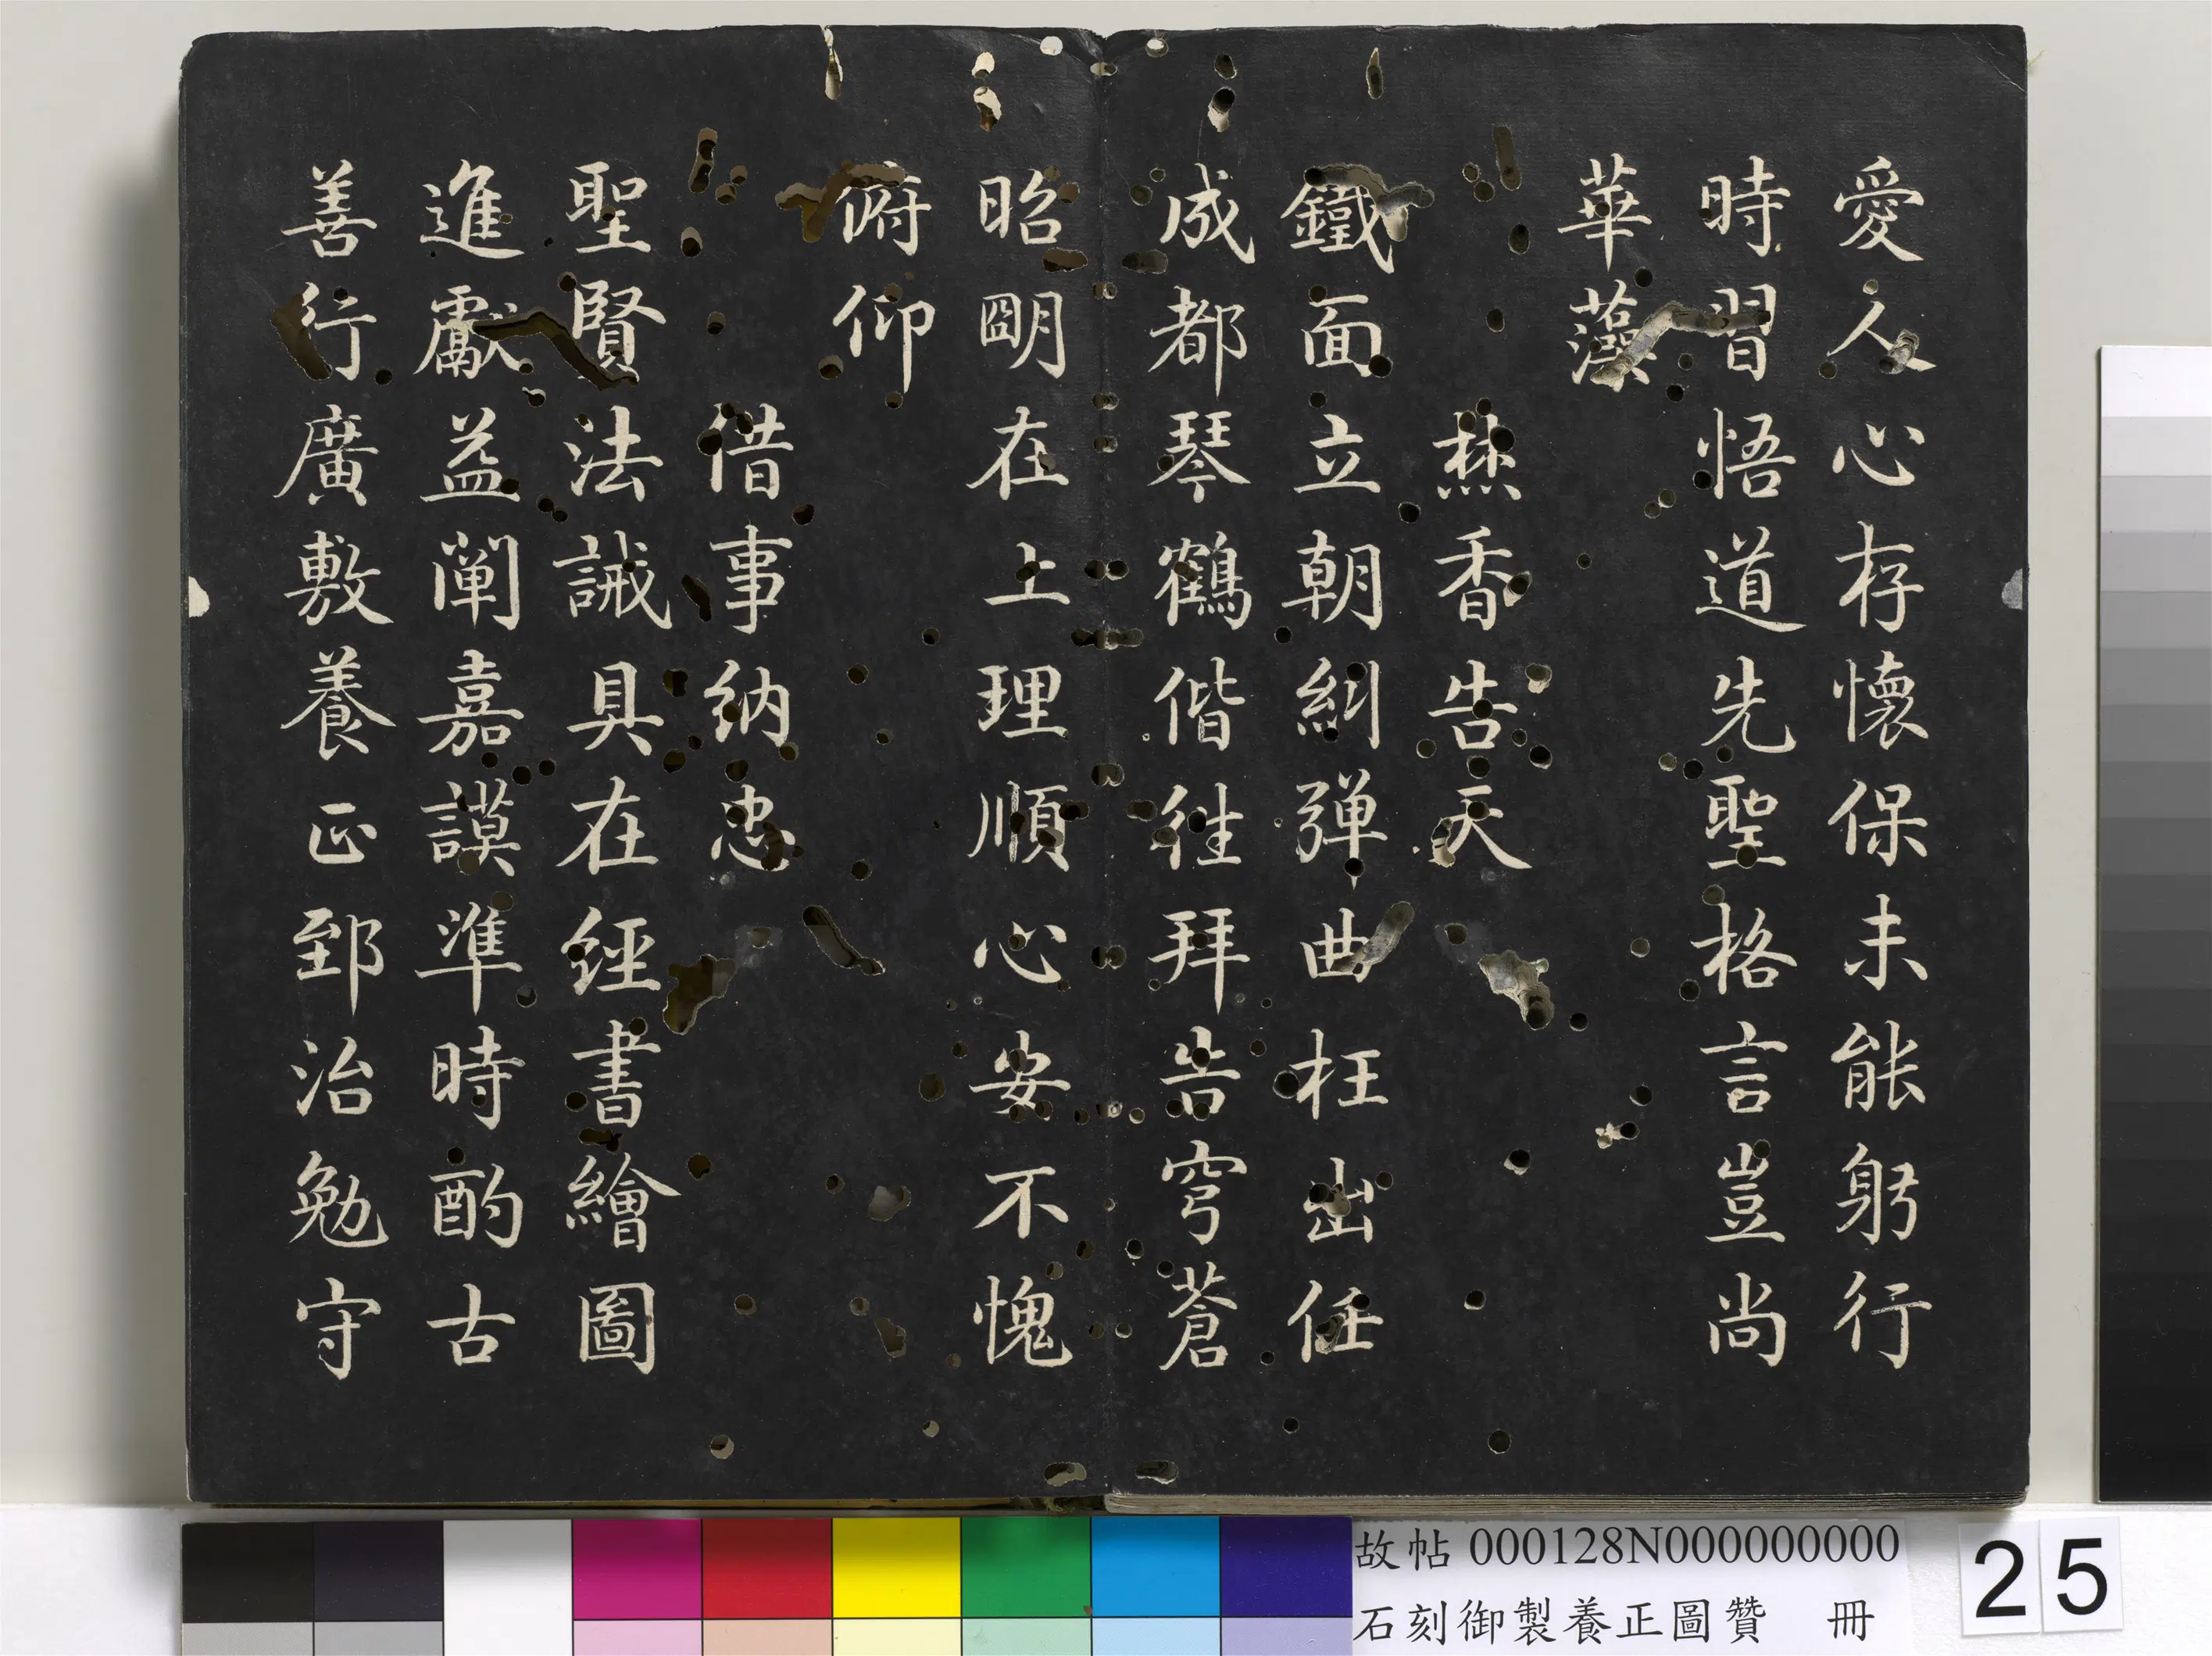 愛人心存懷保未能躬行
時習悟道先聖格言豈尚
華藻
焚香告天
鐵面立朝糾彈曲枉出任
成都琴鶴偕往拜告穹蒼
昭朙在上理順心安不愧
俯仰
借事納忠
聖賢法誡具在經書繪圖
進獻益闡嘉謨準時酌古
善行廣敷養正郅治勉守
故帖 000128N000000000
石刻御製養正圖贊 冊
25